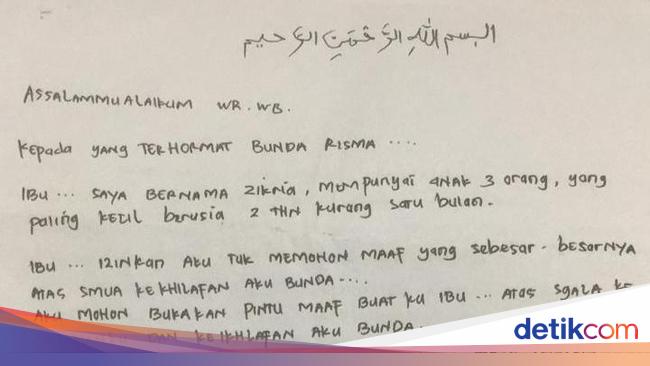 البسم الله الرحمن الرحيم
ASSALAMMUALAIKUM WR. WB.
Kepada YANG TERHORMAT BUNDA RISMA ....
IBU ... SAYA BERNAMA ZIKRIA, MEMPUNYAI ANAK 3 orang, yang
paling KECIL berusia 2 THN kurang satu bulan.
IBU ... IZINKAN AKU TUK MEMOHON MAAF yang sebesar-besarnya
ATAS SMUA KEKHILAFAN AKU BUNDA ....
AKU MOHON BUKAKAN PINTU MAAF BUAT KU IBU ... ATAS SGALA KE
DAN KEIKHLAFAN AKU BUNDA.
detikcom